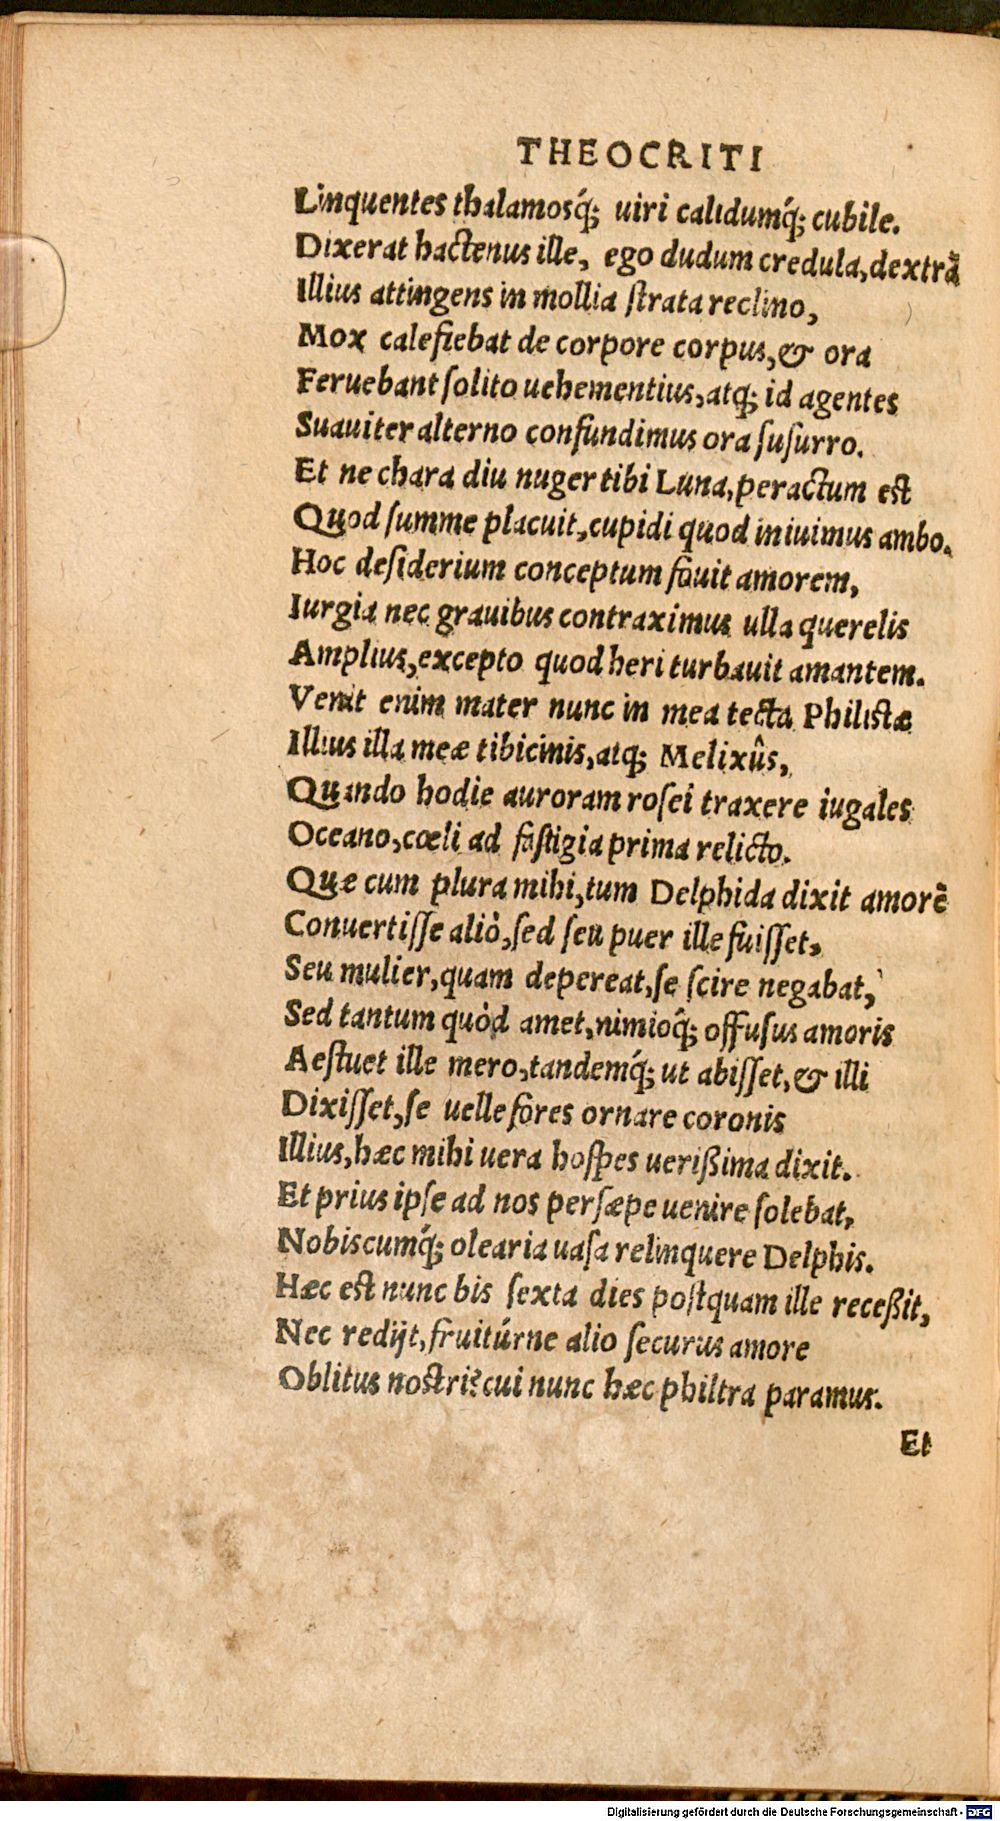 THEOCRITI
Linquentes thalamosq́; uiri calidumq́; cubile.
Dixerat hactenus ille, ego dudum credula, dextrã
Illius attingens in mollia ſtrata reclino,
Mox calefiebat de corpore corpus, & ora
Feruebant ſolito uehementius, atq; id agentes
Suauiter alterno confundimus ora ſuſurro.
Et ne chara diu nuger tibi Luna, peractum est
Quod ſumme placuit, cupidi quod iniuimus ambo.
Hoc deſiderium conceptum fouit amorem,
Iurgia nec grauibus contraximus ulla querelis
Amplius, excepto quod heri turbauit amantem.
Venit enim mater nunc in mea tecta Philistæ
Illius illa meæ tibicinis, atq; Melixûs,
Quando hodie auroram roſei traxere iugales
Oceano, cœli ad faſtigia prima relicto.
Quæ cum plura mihi, tum Delphida dixit amorẽ
Conuertiſſe aliò, ſed ſeu puer ille fuiſſet,
Seu mulier, quam depereat, ſe ſcire negabat,
Sed tantum quòd amet, nimioq́; offuſus amoris
Aeſtuet ille mero, tandemq́; ut abiſſet, & illi
Dixiſſet, ſe uelle fores ornare coronis
Illius, hæc mihi uera hoſpes uerißima dixit.
Et prius ipſe ad nos perſæpe uenire ſolebat,
Nobiscumq́; olearia uaſa relinquere Delphis.
Hæc est nunc bis ſexta dies poſtquam ille receßit,
Nec redijt, fruitúrne alio ſecurus amore
Oblitus nostri? cui nunc hæc philtra paramus.
Et
Digitalisierung gefördert durch die Deutsche Forschungsgemeinschaft - DFG